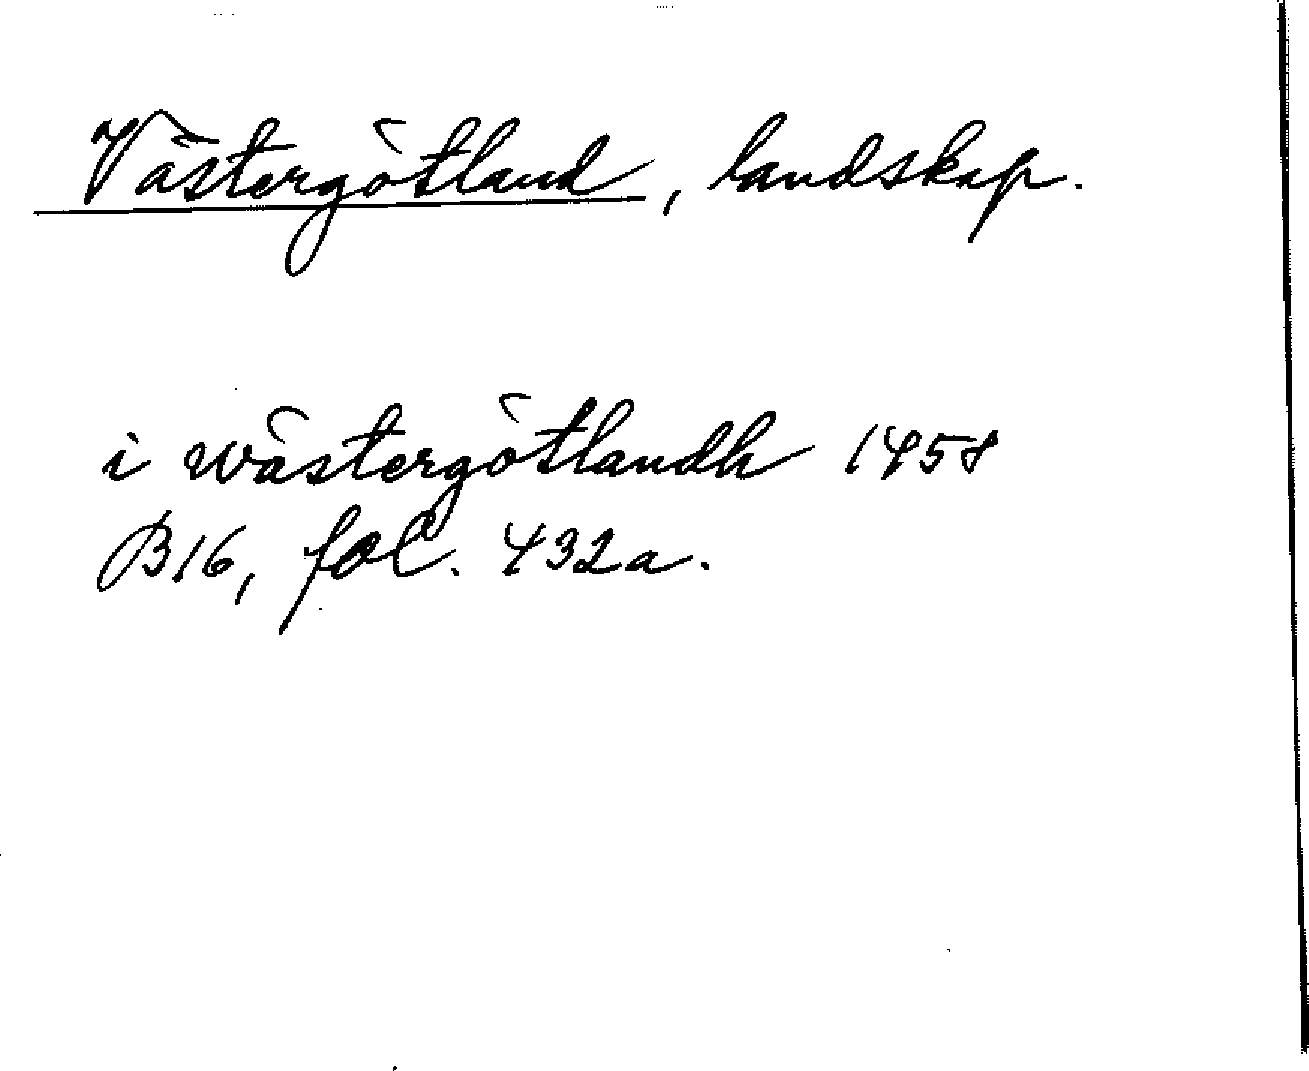 Västergötland, landskap.
i wästergötlandh 1458
B16, fol. 432a.